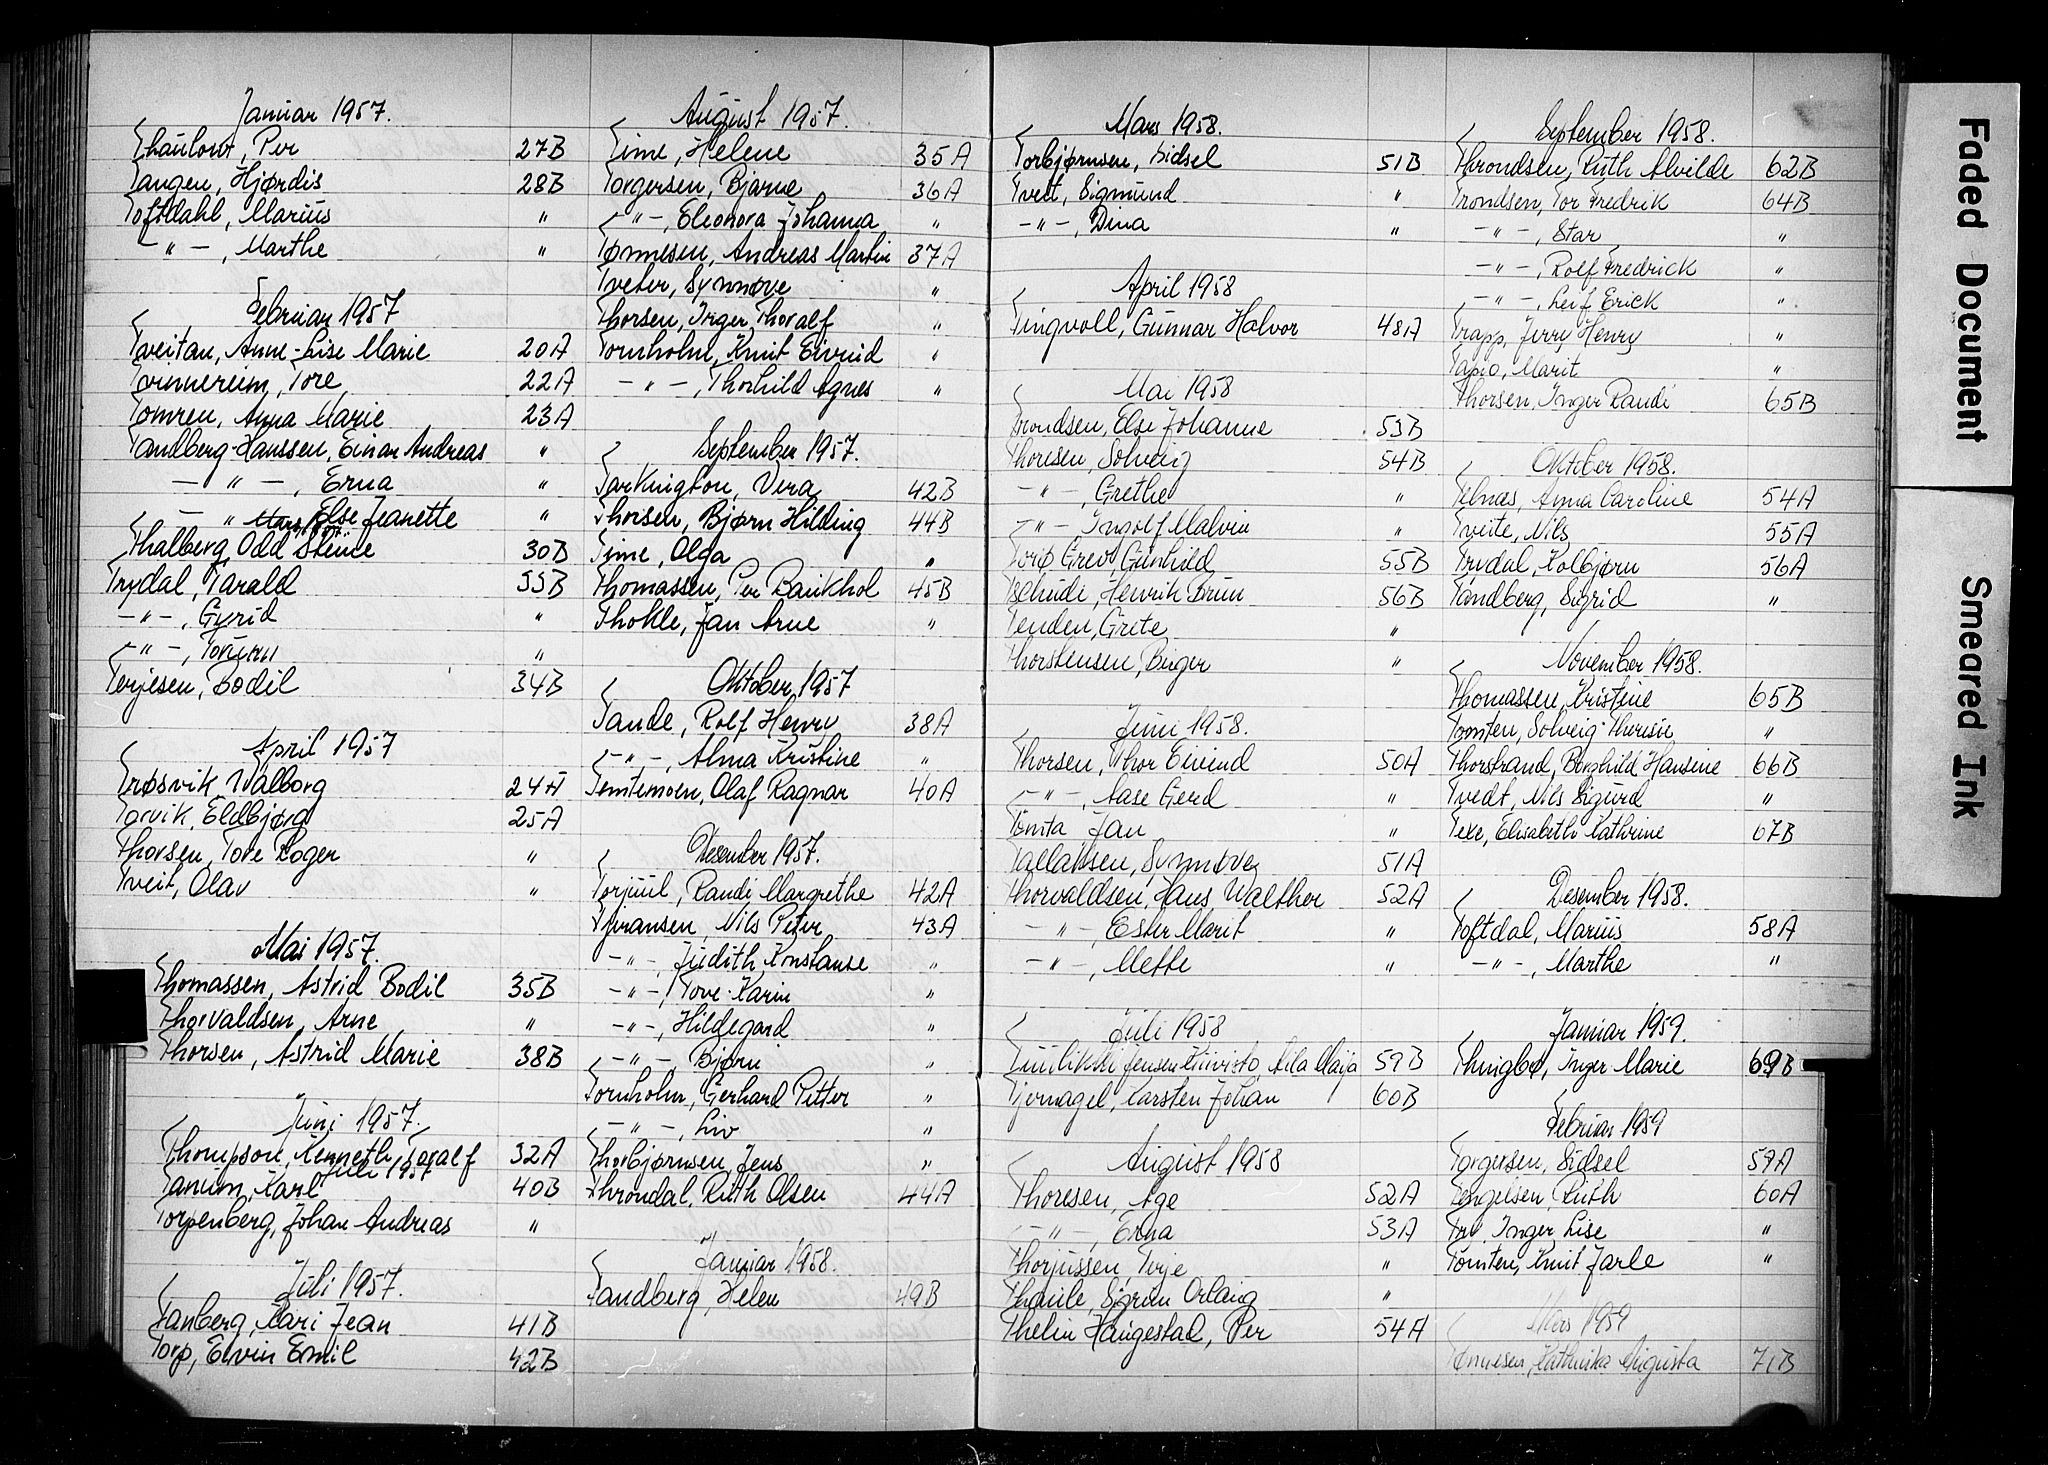 Januar 1957.
Thaulow, Per 27B
Tangen, Hjørdis 28B
Toftdahl, Marius "
— " —, Marthe "
Februar 1957
Tveitan, Anne-Lise Marie 20A
Tvinnereim, Tore 22A
Tomren, Anna Marie 23A
Tandberg-Hanssen, Einar Andreas "
— " —, Erna "
— " — Else Jeanette "
Mars 1957
Thalberg, Odd Steine 30B
Trydal, Tarald 33B
— " —, Gyrid "
— " —, Torunn "
Terjesen, Bodil 34B
April 1957
Trøsvik, Valborg 24A
Torvik, Eldbjørg 25A
Thorsen, Tore Roger "
Tveit, Olav "
Mai 1957.
Thomassen, Astrid Bodil 35B
Thorvaldsen, Arne "
Thorsen, Astrid Marie 38B
Juni 1957.
Thompson, Kenneth Toralf 32A
Juli 1957
Tanum, Karl 40B
Torpenberg, Johan Andreas "
Juli 1957.
Tanberg, Kari Jean 41B
Torp, Ervin Emil 42B
August 1957.
Time, Helene 35A
Torgersen, Bjarne 36A
— " —, Eleonora Johanna "
Tønnesen, Andreas Martin 37A
Tveter, Synnøve "
Thorsen, Inger Thoralf "
Tornholm, Knut Eivind "
— " —, Thorhild Agnes "
September 1957.
Tarkington, Vera 42B
Thorsen, Bjørn Hilding 44B
Time, Olga "
Thomassen, Per Bankhol 45B
Thohle, Jan Arne "
Oktober 1957
Tande, Rolf Henry 38A
— " —, Alma Kristine "
Temtemoen, Olaf Ragnar 40A
Desember 1957.
Torjuul, Randi Margrethe 42A
Tjøransen, Nils Peter 43A
— " —, Judith Konstanse "
— " —, Tove Karin "
— " —, Hildegard "
— " —, Bjørn "
Tornholm, Gerhard Petter "
— " —, Liv "
Thorbjørnsen, Jens "
Throndal, Ruth Olsen 44A
Januar 1958.
Tandberg, Helen 49B
Mars 1958.
Torbjørnsen, Sidsel 51B
Tveit, Sigmund "
— " —, Dina "
April 1958
Tingvoll, Gunnar Halvor 48A
Mai 1958
Trondsen, Else Johanne 53B
Thoresen, Solveig 54B
— " —, Grethe "
— " — Ingolf Malvin "
Torø Greve, Gunhild 55B
Tschudi, Henrik Brun 56B
Tenden, Grete "
Thorstensen, Birger "
Juni 1958.
Thorsen, Thor Eivind 50A
— " —, Aase Gerd "
Tomta Jan "
Tallaksen, Synnøve 51A
Thorvaldsen, Hans Walther 52A
— " —, Ester Marit "
— " —, Mette "
Juli 1958
Jensen, Aila Maija 59B
Tjernagel, Karsten Johan 60B
August 1958
Thoresen, Åge 52A
— " —, Erna 53A
Thorjussen, Terje "
Thaule, Sigrun Orlaug "
Thelin Haugestad, Per 54A
September 1958.
Throndsen, Ruth Alvilde 62B
Trondsen, Tor Fredrik 64B
— " —, Star "
— " —, Rolf Fredrick "
— " —, Leif Erick "
Trapp, Jerry Henry "
Tapio, Marit "
Thorsen, Inger Randi 65B
Oktober 1958.
Tilnæs, Anna Caroline 54A
Tveite, Nils 55A
Trydal, Kolbjørn 56A
Tandberg, Sigrid "
November 1958.
Thomassen, Kristine 65B
Tomten, Solveig Theresie "
Thorstrand, Borghild Hansine 66B
Tvedt, Nils Sigurd "
Texe, Elisabeth Kathrine 67B
Desember 1958.
Toftdal, Marius 58A
— " —, Marthe "
Januar 1959.
Thingbø, Inger Marie 69B
Februar 1959
Torgersen, Sidsel 59A
Tengelsen, Ruth 60A
Try, Inger Lise "
Tomten, Knut Jarle "
Mars 1959
Tønnesen, Kathinka Augusta 71B
Faded Document
Smeared Ink